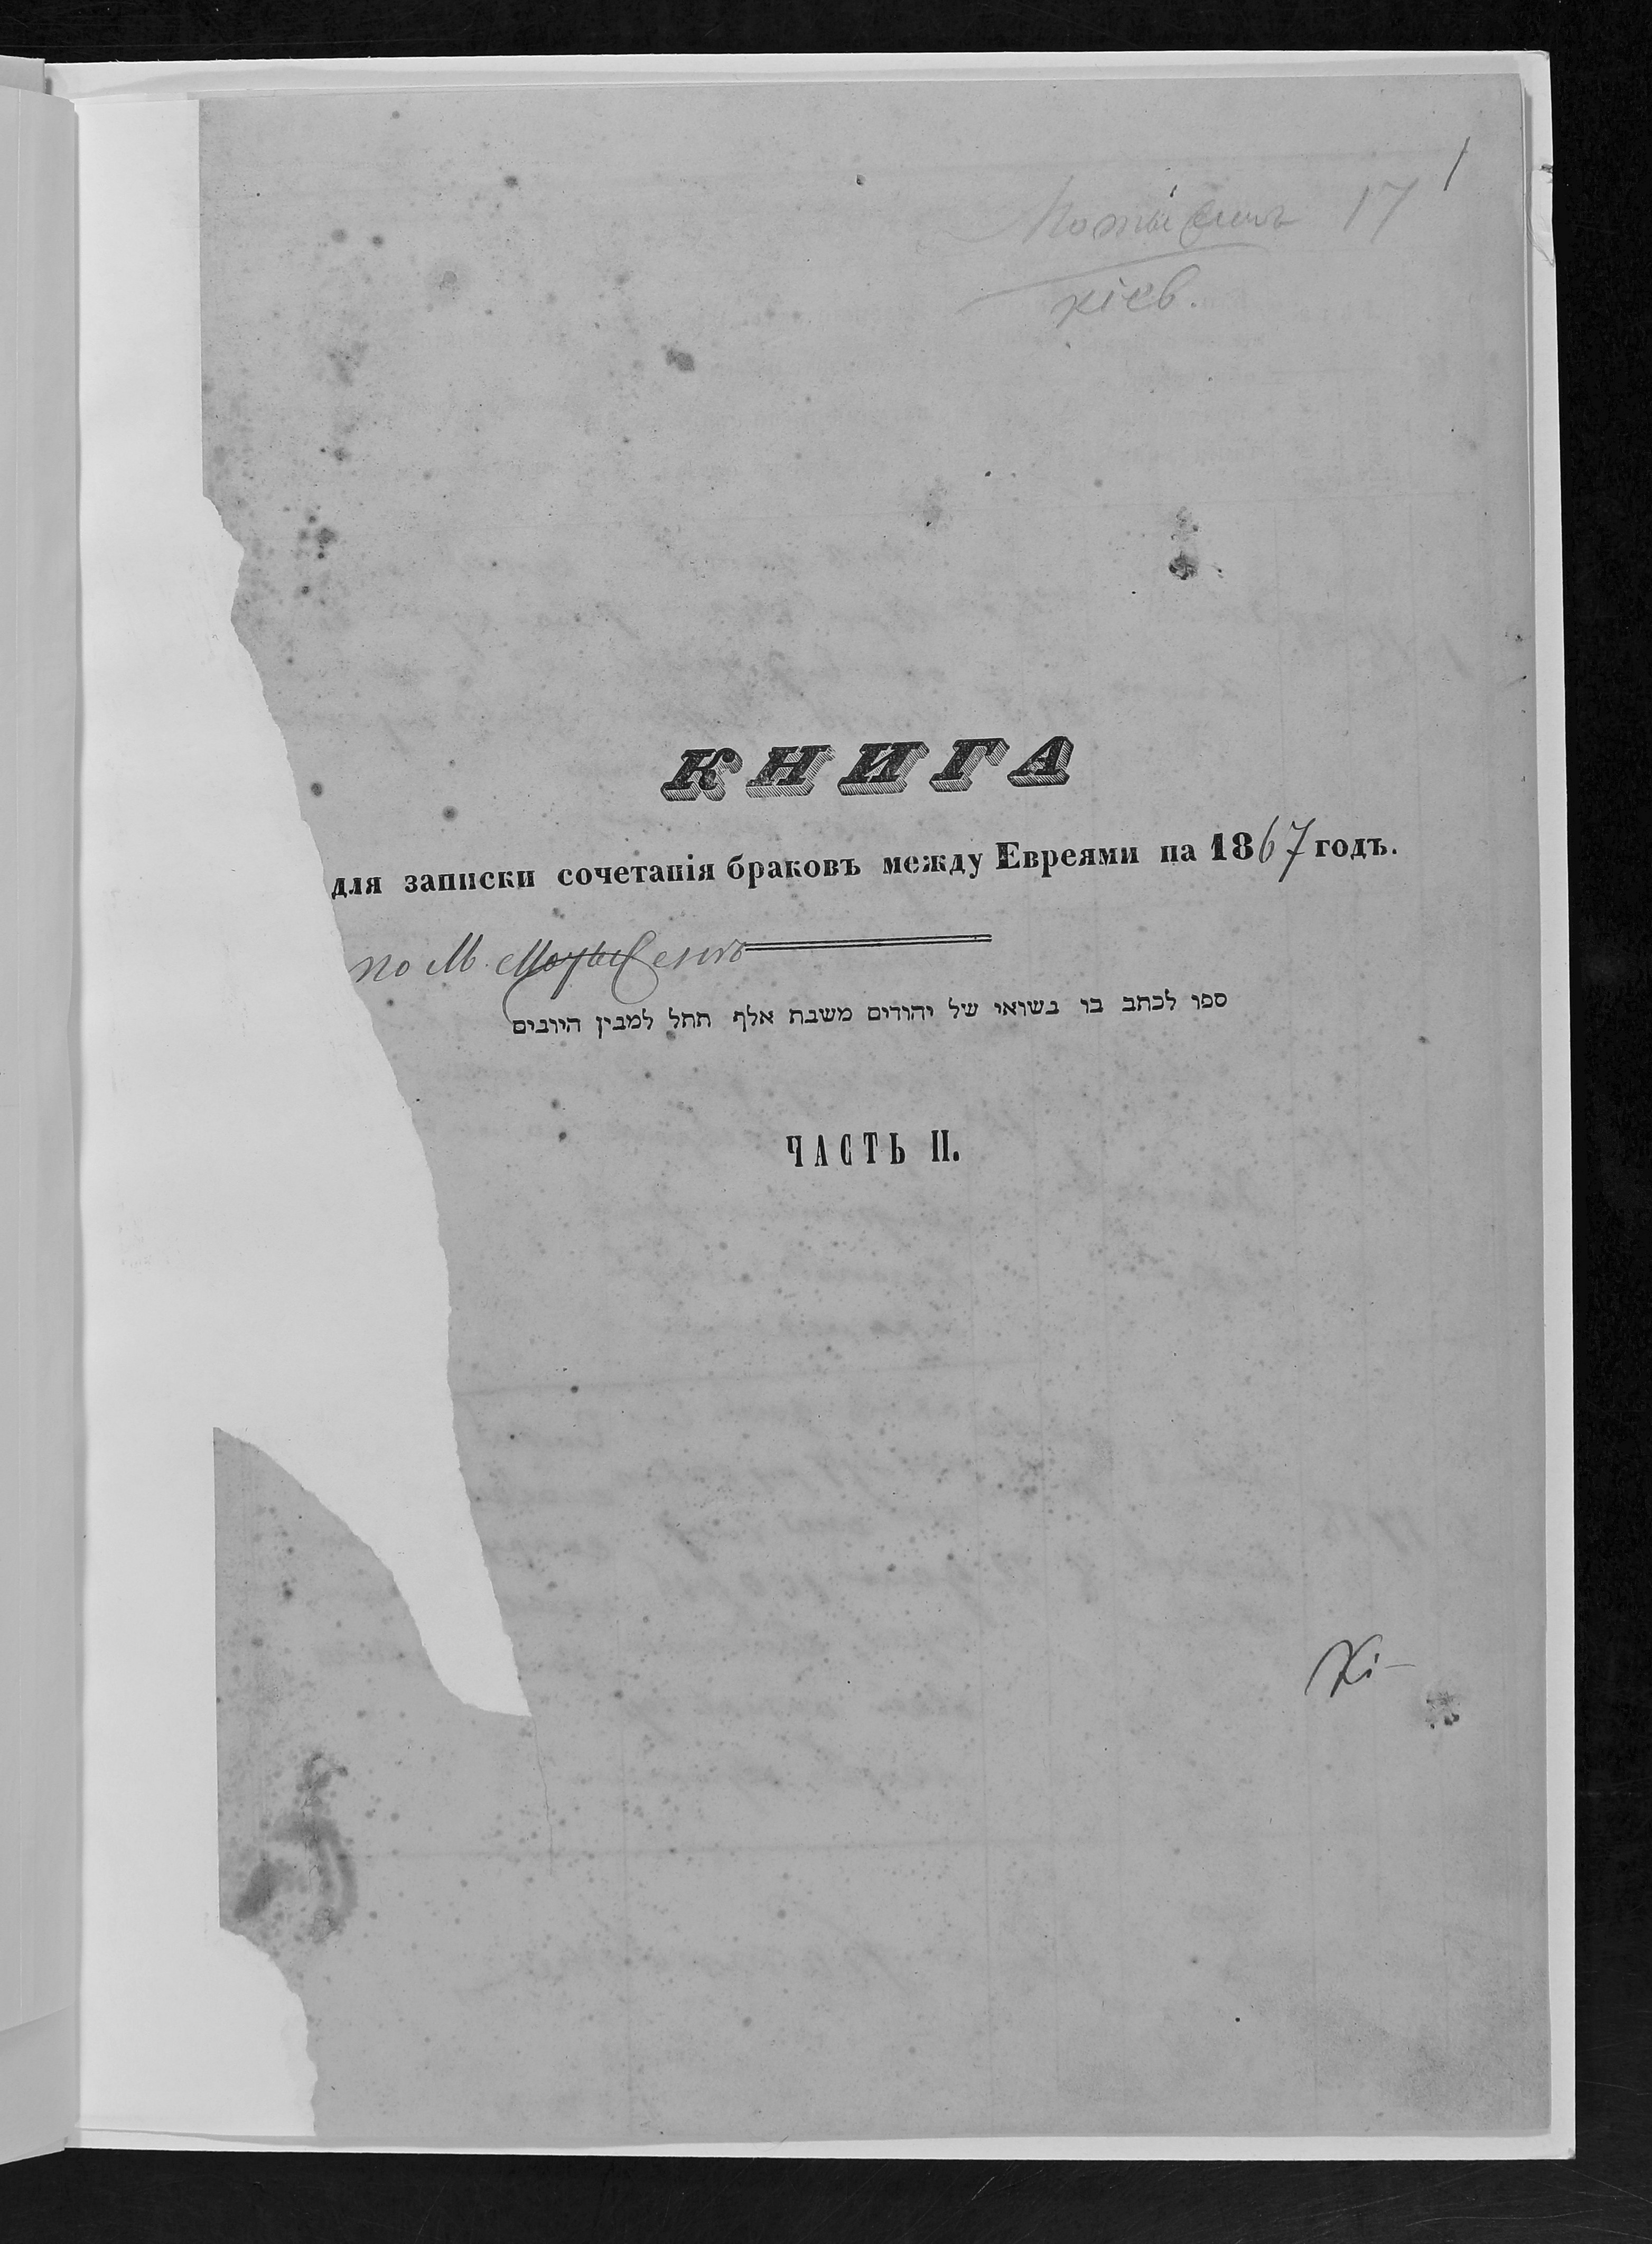 1
Мотыжинъ 17
кіев.
КНИГА
для записки сочетанія браковъ между Евреями на 1867 годъ.
по М.
ספו לכתב בו בשואי של יהודים משבת אלף תחל למבין היובים
ЧАСТЬ II.